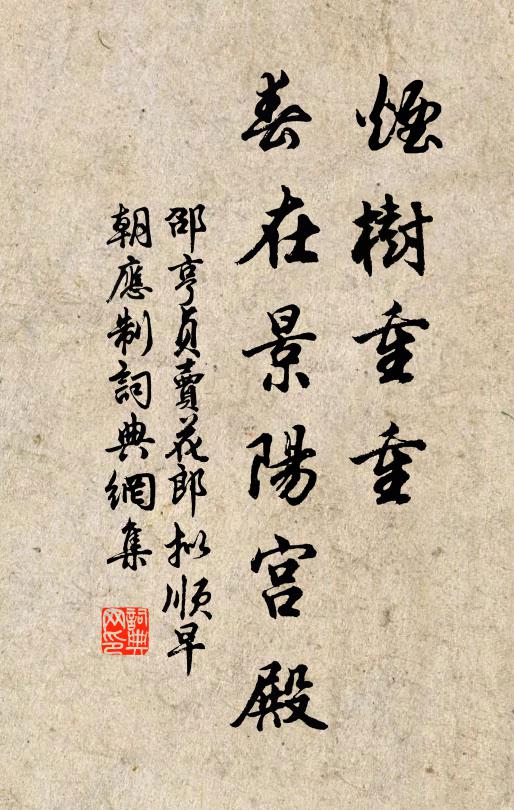 煙樹重重
春在景陽宮殿
邵亨貞賣花郎拟順早
朝應制詞典網集
詞典网印